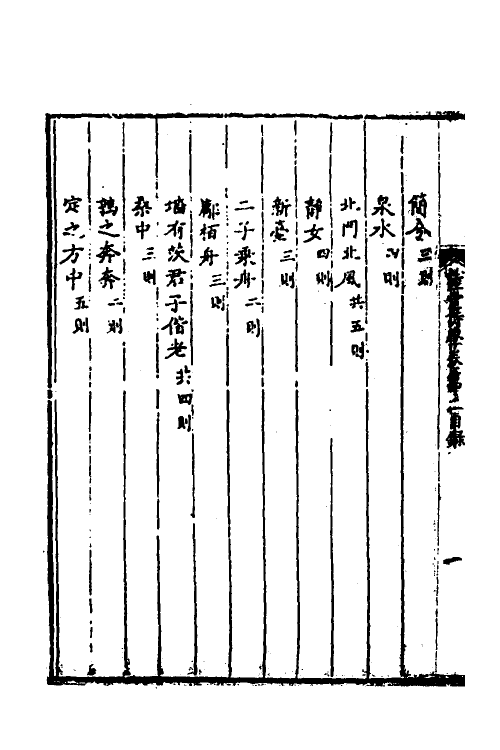 簡兮 四則
泉水 四則
北門北風 共五則
靜女 四則
新臺 三則
二子乘舟 二則
鄘柏舟 三則
墻有茨君子偕老 共四則
桑中 三則
鶉之奔奔 二則
定之方中 五則
目錄
一